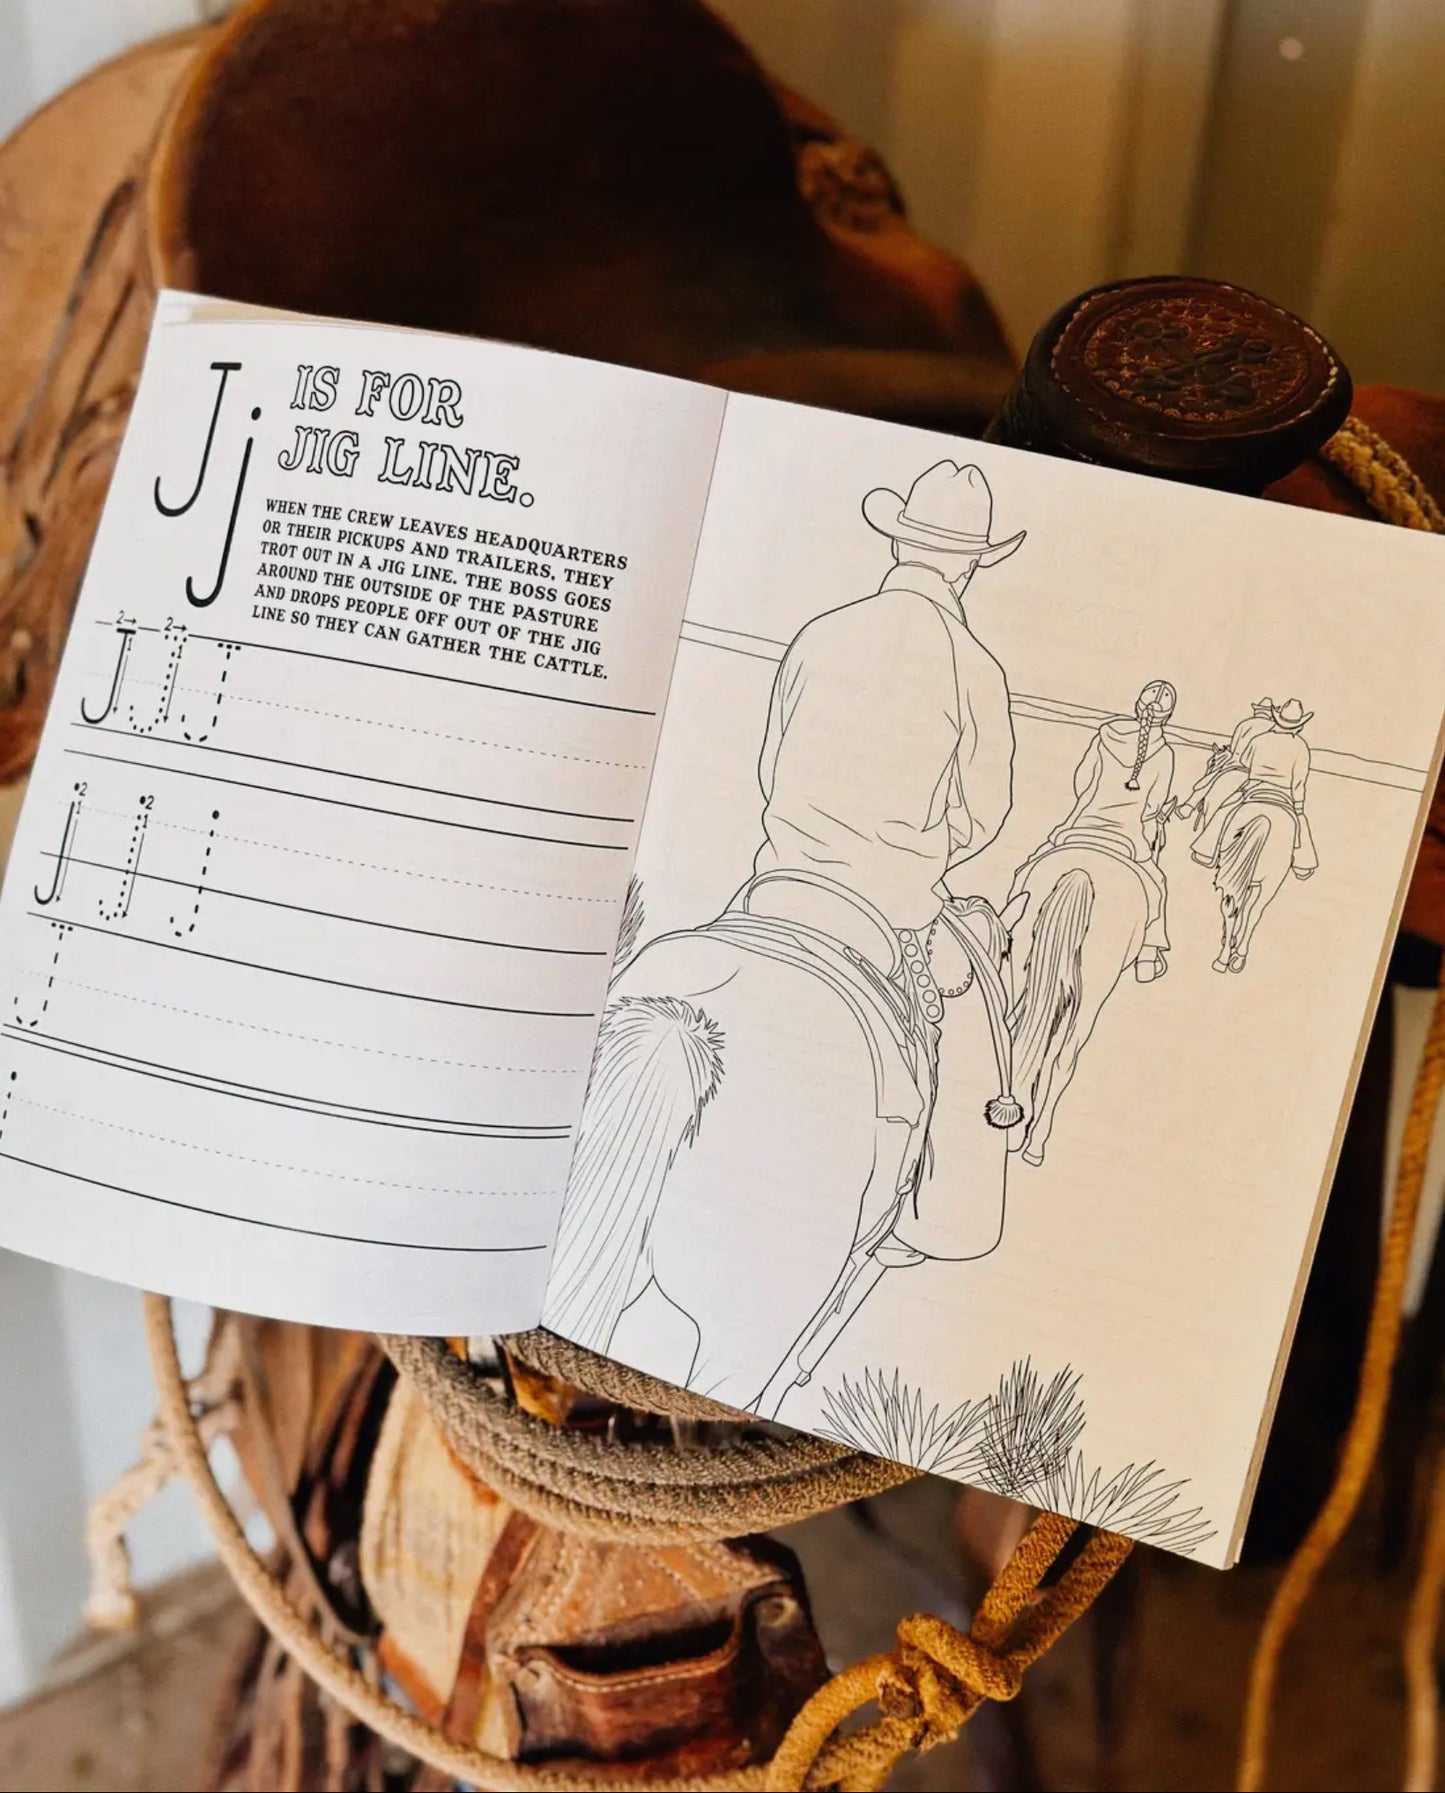 Jj
IS FOR
JIG LINE.
WHEN THE CREW LEAVES HEADQUARTERS
OR THEIR PICKUPS AND TRAILERS, THEY
TROT OUT IN A JIG LINE. THE BOSS GOES
AROUND THE OUTSIDE OF THE PASTURE
AND DROPS PEOPLE OFF OUT OF THE JIG
LINE SO THEY CAN GATHER THE CATTLE.
2→ 2→
J 1 J 1 J
2 2
j 1 j 1 j
J
j